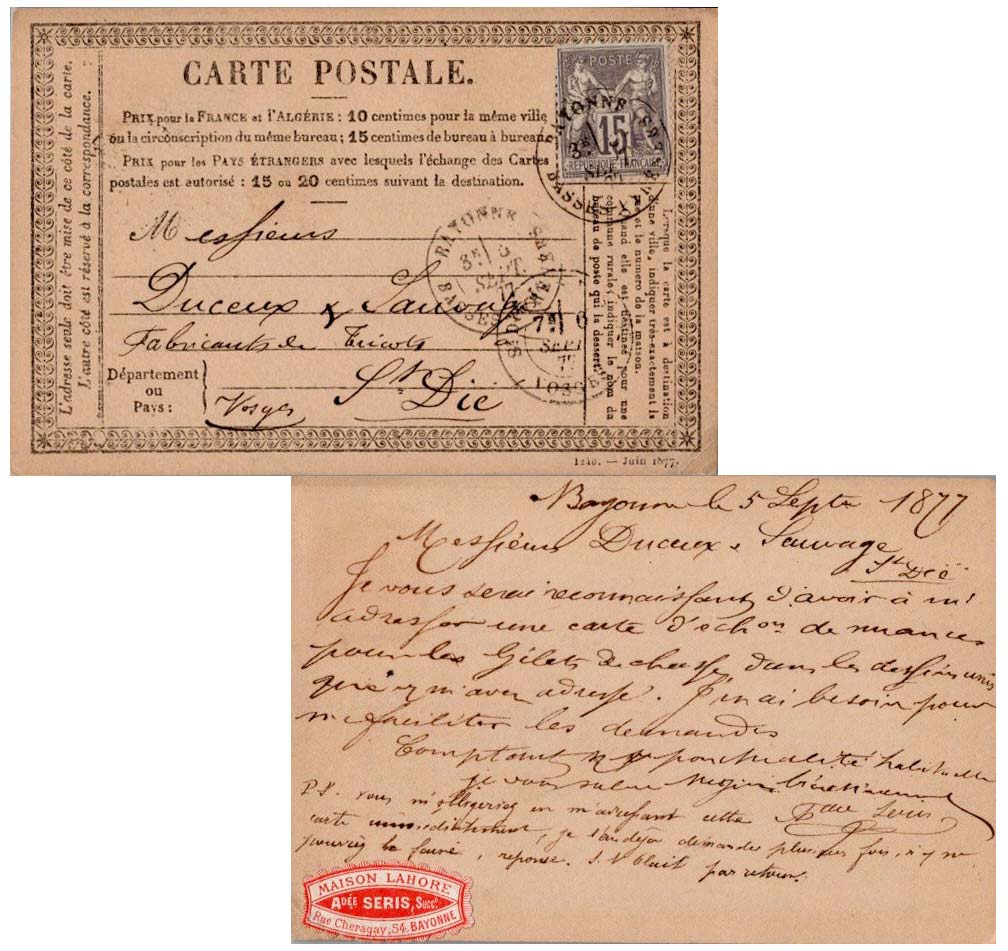 CARTE POSTALE.
PRIX pour la FRANCE et l'ALGÉRIE : 10 centimes pour la même ville
ou la circonscription du même bureau ; 15 centimes de bureau à bureau.
PRIX pour les PAYS ÉTRANGERS avec lesquels l'échange des Cartes
postales est autorisé : 15 ou 20 centimes suivant la destination.
L'adresse seule doit être mise de ce côté de la carte.
L'autre côté est réservé à la correspondance.
POSTE
15
REPUBLIQUE FRANÇAISE
BAYONNE
BASSES
BAYONNE
3E 5
SEPT.
77
7E 6
SEPT
77
VOSGES
Messieurs
Duceux &
Fabricants de Tricots
St Dié
Département
ou
Pays :
Vosges
Lorsque la carte est à destination
d'une ville, indiquer très-exactement la
rue et le numéro de la maison.
Quand elle est destinée pour une
commune rurale, indiquer le nom du
bureau de poste qui la dessert.
1240. — Juin 1877.
Bayonne le 5 Septe 1877
Messieurs Duceux & Sauvage
St Dié
Je vous serai reconnaissant d'avoir à m'
adresser une carte d'échon de nuances
pour les Gilets de chasse dans les dessins unis
que adressé. J'en ai besoin pour
me faciliter les demandes
Comptant ponctualité habituelle
je vous salue
Adée Seris
P.S. vous m'obligeriez en m'adressant cette
carte immédiatement, je l'ai déjà demandée plusieurs fois,
pouviez le faire, réponse S.V. Plait par retour.
MAISON LAHORE
ADÉE SERIS, Succr.
Rue Cheragay, 54. BAYONNE